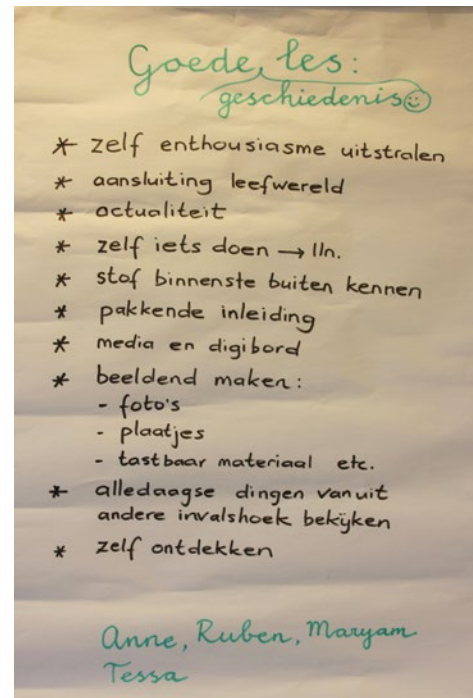 Goede, les:
geschiedenis☺
* zelf enthousiasme uitstralen
* aansluiting leefwereld
* actualiteit
* zelf iets doen → lln.
* stof binnenste buiten kennen
* pakkende inleiding
* media en digibord
* beeldend maken:
- foto's
- plaatjes
- tastbaar materiaal etc.
* alledaagse dingen vanuit
andere invalshoek bekijken
* zelf ontdekken
Anne, Ruben, Maryam
Tessa